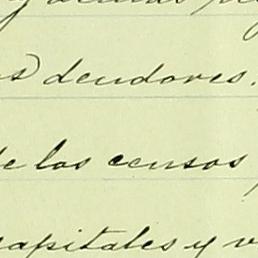 s deudores.
de los censos
capitales y v